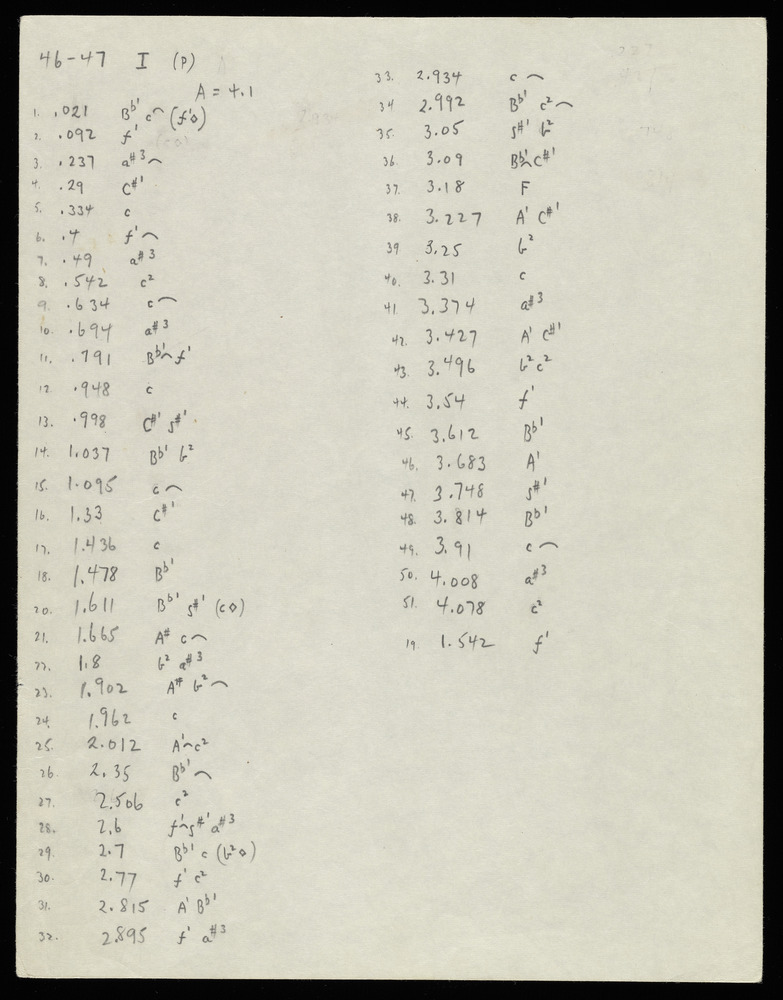 46-47 I (P)
A = 4.1
1. .021 Bb' c⌒ (f'◊)
2. .092 f'
3. .237 a#3⌒
4. .29 C#'
5. .334 c
6. .4 f'⌒
7. .49 a#3
8. .542 c²
9. .634 c⌒
10. .694 a#3
11. .791 Bb'⌒f'
12 .948 c
13. .998 C#' g#'
14. 1.037 Bb' b²
15. 1.095 c⌒
16. 1.33 C#'
17. 1.436 c
18. 1.478 Bb'
20. 1.611 Bb' g#' (c◊)
21. 1.665 A# c⌒
22. 1.8 b² a#3
23. 1.902 A# b²⌒
24. 1.962 c
25. 2.012 A'⌒c²
26. 2.35 Bb'⌒
27. 2.506 c²
28. 2.6 f'⌒g#' a#3
29. 2.7 Bb' c (b²◊)
30. 2.77 f' c²
31. 2.815 A' Bb'
32. 2.895 f' a#3
33. 2.934 c⌒
34 2.992 Bb' c²⌒
35. 3.05 g#' b²
36. 3.09 Bb'⌒C#'
37. 3.18 F
38. 3.227 A' C#'
39 3.25 b²
40. 3.31 c
41 3.374 a#3
42. 3.427 A' C#'
43. 3.496 b² c²
44. 3.54 f'
45. 3.612 Bb'
46. 3.683 A'
47. 3.748 g#'
48. 3.814 Bb'
49. 3.91 c⌒
50. 4.008 a#3
51. 4.078 c²
19 1.542 f'